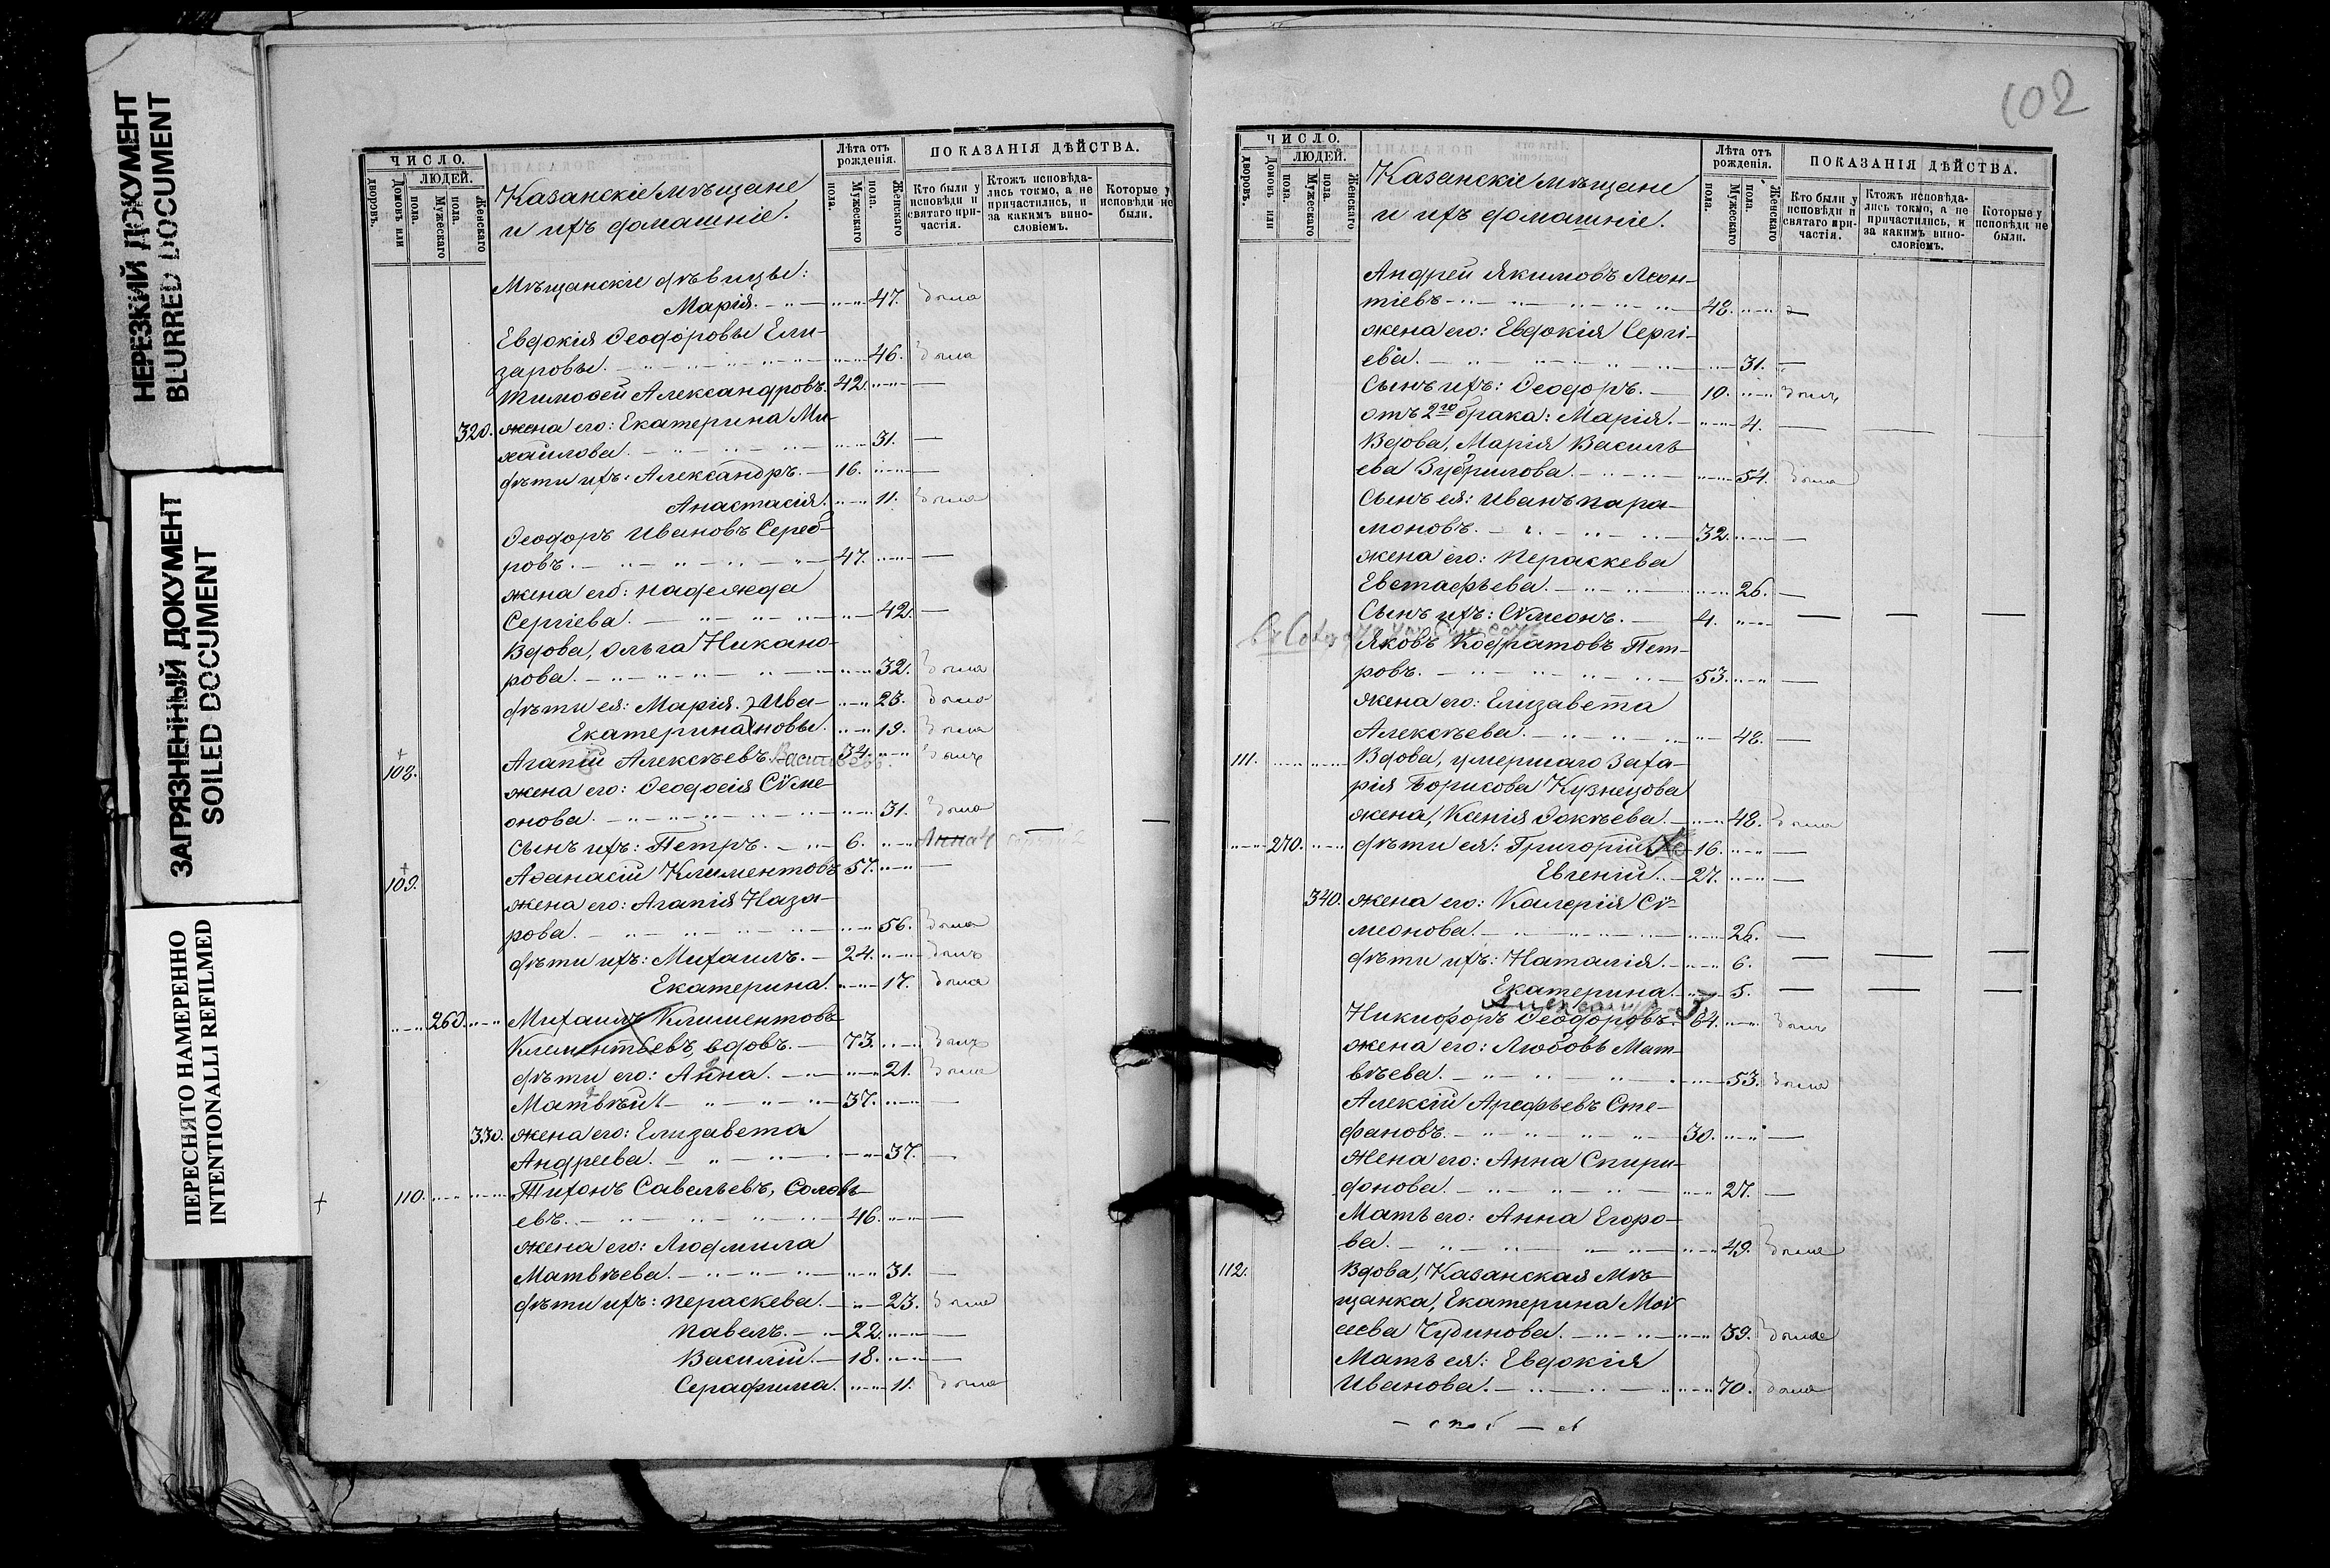 НЕРЕЗКИЙ ДОКУМЕНТ
BLURRED DOCUMENT
ЗАГРЯЗНЕННЫЙ ДОКУМЕНТ
SOILED DOCUMENT
ПЕРЕСНЯТО НАМЕРЕННО
INTENTIONALLI REFILMED
ЧИСЛО.
ЛЮДЕЙ.
Домовъ или дворовъ.
Мужескаго пола.
Женскаго пола.
Казанскіе мѣщане
и ихъ домашніе.
Лѣта отъ рожденія.
Мужескаго пола.
Женскаго пола.
ПОКАЗАНІЯ ДѢЙСТВА.
Кто были у исповѣди и святаго причастія.
Ктожъ исповѣдались токмо, а не причастились, и за какимъ винословіемъ.
Которые у исповѣди не были.
Мѣщанскіе дѣвицы:
Марія. 47. была
Евдокія Ѳеодоровы Ели-
заровы. 46. была
Тимоѳей Александровъ. 42. —
320. жена его: Екатерина Ми-
хайлова. 31. —
дѣти ихъ: Александръ. 16. —
Анастасія. 11. была
Ѳеодоръ Ивановъ Сереб-
ровъ. 47. —
жена его: Надежда
Сергіева. 42. —
Вдова, Ольга Никано-
рова. 32. была
дѣти ея: Марія. Ива- 23. была
Екатерина новы. 19. была
108. Агапій Алексѣевъ. Васильевъ. 34. былъ
жена его: Ѳеодосія Сѵме-
онова. 31. была
сынъ ихъ: Петръ. 6. Анна 4
109. Аѳанасій Климентовъ 57. —
жена его: Агапія Наза-
рова. 56. была
дѣти ихъ: Михаилъ. 24. былъ
Екатерина. 17. была
260. Михаилъ Климентовъ
Климентьевъ, вдовъ. 73. былъ
дѣти его: Анна. 21. была
Матвѣй. 37. —
330. жена его: Елизавета
Андреева. 37. —
110. Тихонъ Савельевъ, Соловь-
евъ. 46. —
жена его: Людмила
Матвѣева. 31. —
дѣти ихъ: Пераскева. 23. была
Павелъ. 22. —
Василій. 18. —
Серафима. 11. была
102
ЧИСЛО.
ЛЮДЕЙ.
Домовъ или дворовъ.
Мужескаго пола.
Женскаго пола.
Казанскіе мѣщане
и ихъ домашніе.
Лѣта отъ рожденія.
Мужескаго пола.
Женскаго пола.
ПОКАЗАНІЯ ДѢЙСТВА.
Кто были у исповѣди и святаго причастія.
Ктожъ исповѣдались токмо, а не причастились, и за какимъ винословіемъ.
Которые у исповѣди не были.
Андрей Якимовъ Леон-
тіевъ 48. —
жена его: Евдокія Сергі-
ева. 31. —
Сынъ ихъ: Ѳеодоръ. 10. былъ
отъ 2го брака: Марія. 4. — — —
Вдова, Марія Василь-
ева Зубрилова. 54. была
Сынъ ея: Иванъ Пара-
моновъ. 32. —
жена его: Пераскева
Евстафьева. 26. —
Сынъ ихъ: Сѵмеонъ. 4. — — —
Яковъ Кодратовъ Пет-
ровъ. 53. —
жена его: Елизавета
Алексѣева. 48. —
111. Вдова, умершаго Заха-
рія Борисова Кузнецова
жена, Ксенія Ѳокѣева. 48. была
270. дѣти ея: Григорій 16. —
Евгеній. 27. —
340. жена его: Калерія Сѵ-
меонова. 26. —
дѣти ихъ: Наталія. 6. — — —
Екатерина. 5. — — —
Никифоръ Ѳеодоровъ. 64. былъ
жена его: Любовь Мат-
вѣева. 53. была
Алексій Арефьевъ Сте-
фановъ. 30. —
Жена его: Анна Спири-
донова. 27. —
Мать его: Анна Егоро-
ва. 49. была
112. Вдова, Казанская Мѣ-
щанка, Екатерина Мои
сеева Чудинова. 39. была
Мать ея: Евдокія
Иванова. 70. была